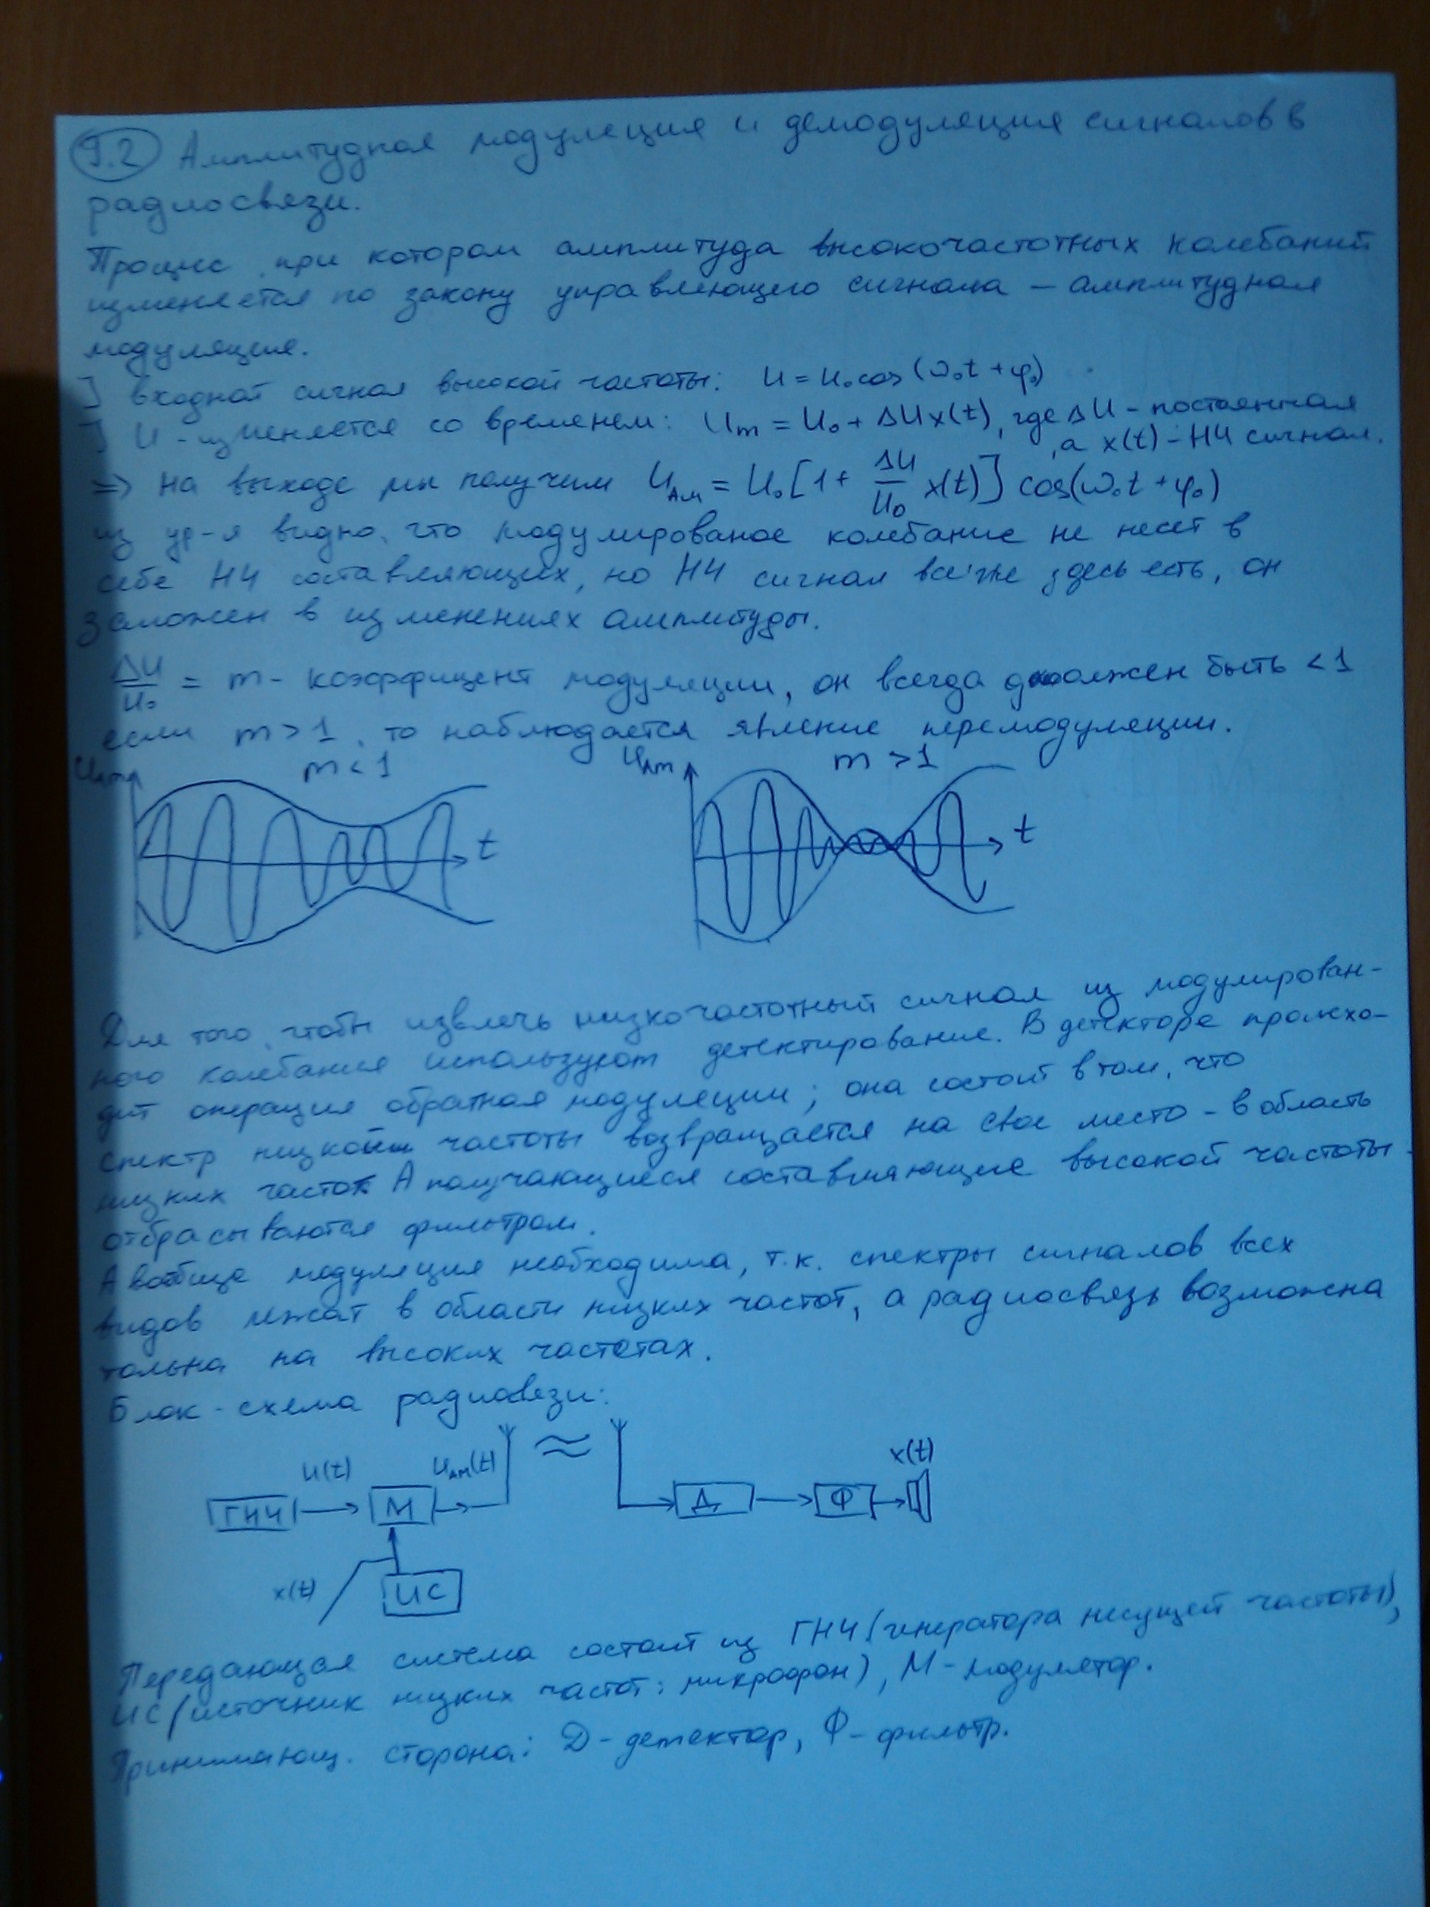 9.2 Амплитудная модуляция и демодуляция сигналов в
радиосвязи.
Процес, при котором амплитуда высокочастотных колебаний
изменяется по закону управляющего сигнала – амплитудная
модуляция.
] входной сигнал высокой частоты: U = U₀cos(ω₀t + φ₀)
] U - изменяется со временем: Um = U₀ + ΔUx(t), где ΔU – постоянная
, а x(t) – НЧ сигнал.
=> на выходе мы получим U_АМ = U₀[1 + ΔU/U₀ x(t)] cos(ω₀t + φ₀)
из ур-я видно, что модулированое колебание не несет в
себе НЧ составляющих, но НЧ сигнал все же здесь есть, он
заложен в изменениях амплитуды.
ΔU/U₀ = m - коэффицент модуляции, он всегда должен быть < 1
если m > 1, то наблюдается явление перемодуляции.
U_Ам m < 1 U_Ам m > 1
t t
Для того, чтобы извлечь низкочастотный сигнал из модулирован-
ного колебания используют детектирование. В детекторе происхо-
дит операция обратная модуляции; она состоит в том, что
спектр низкой частоты возвращается на свое место – в область
низких частот. А получающиеся составляющие высокой частоты
отбрасываются фильтром.
А вообще модуляция необходима, т.к. спектры сигналов всех
видов лежат в области низких частот, а радиосвязь возможна
только на высоких частотах.
Блок-схема радиовязи:
U(t) U_АМ(t) x(t)
ГНЧ М Д Ф
x(t) ИС
Передающая система состоит из ГНЧ (генератора несущей частоты),
ИС (источник низких частот: микрофон), М – модулятор.
Принимающ. сторона: Д – детектор, Ф – фильтр.